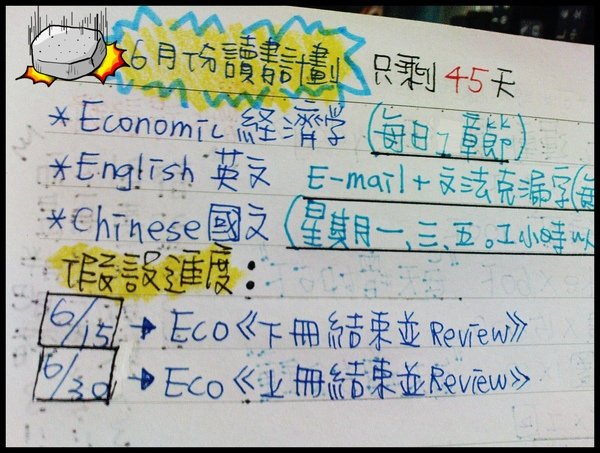 6月份讀書計劃 只剩45天
*Economic 経濟學 (每日1章節)
*English 英文 E-mail+文法克漏字(每
*Chinese 國文 (星期一,三,五。1小時以
假設進度:
6/15 → Eco《下冊結束並Review》
6/30 → Eco《上冊結束並Review》